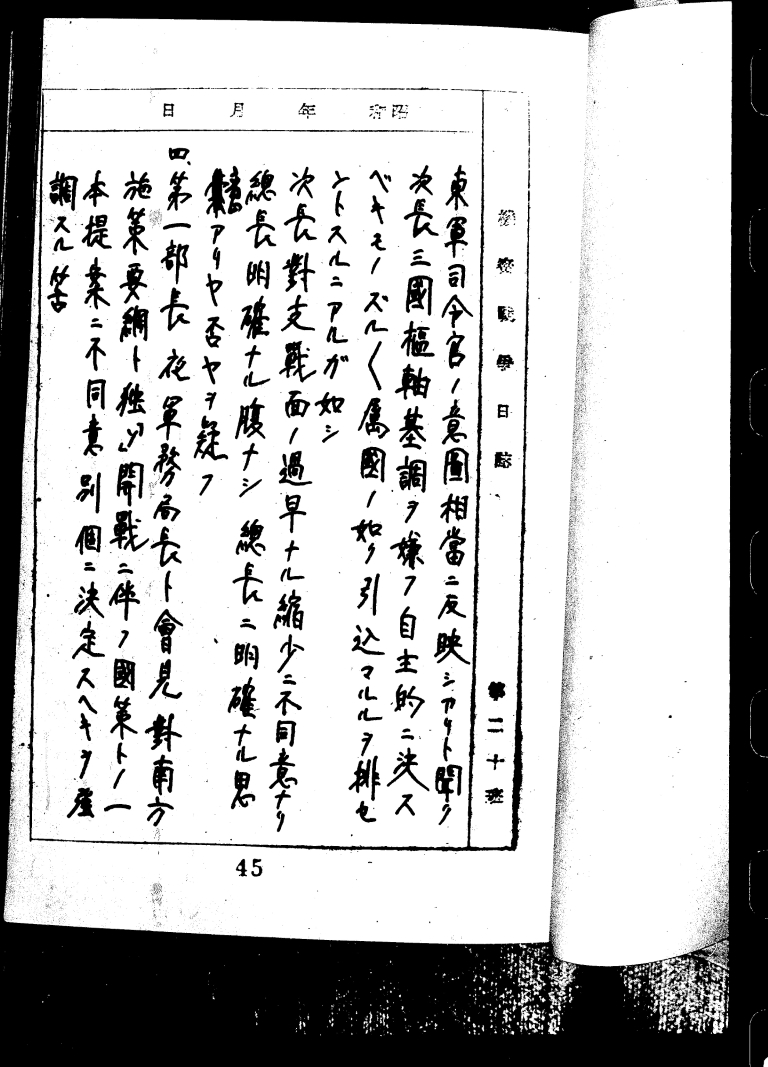 機密戰爭日誌
第二十班
昭和 年 月 日
東軍司令官ノ意圖相當ニ反映シアリト聞ク
次長三國樞軸基調ヲ嫌フ自主的ニ決ス
ベキモノズル〱属國ノ如ク引込マルルヲ排セ
ントスルニアルガ如シ
次長對支戰面ノ過早ナル縮少ニ不同意ナリ
總長明確ナル腹ナシ 總長ニ明確ナル思
アリヤ否ヤヲ疑フ
四、第一部長夜軍務局長ト會見對南方
施策要綱ト独「ソ」開戰ニ伴フ國策トノ一
本提案ニ不同意別個ニ決定スヘキヲ强
調スル筈
45